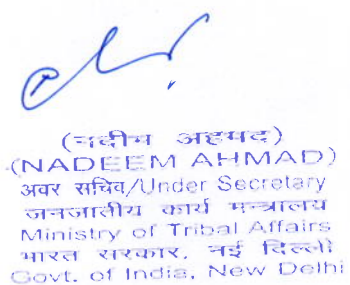 (नदीम अहमद)
(NADEEM AHMAD)
अवर सचिव/Under Secretary
जनजातीय कार्य मन्त्रालय
Ministry of Tribal Affairs
भारत सरकार, नई दिल्ली
Govt. of India, New Delhi